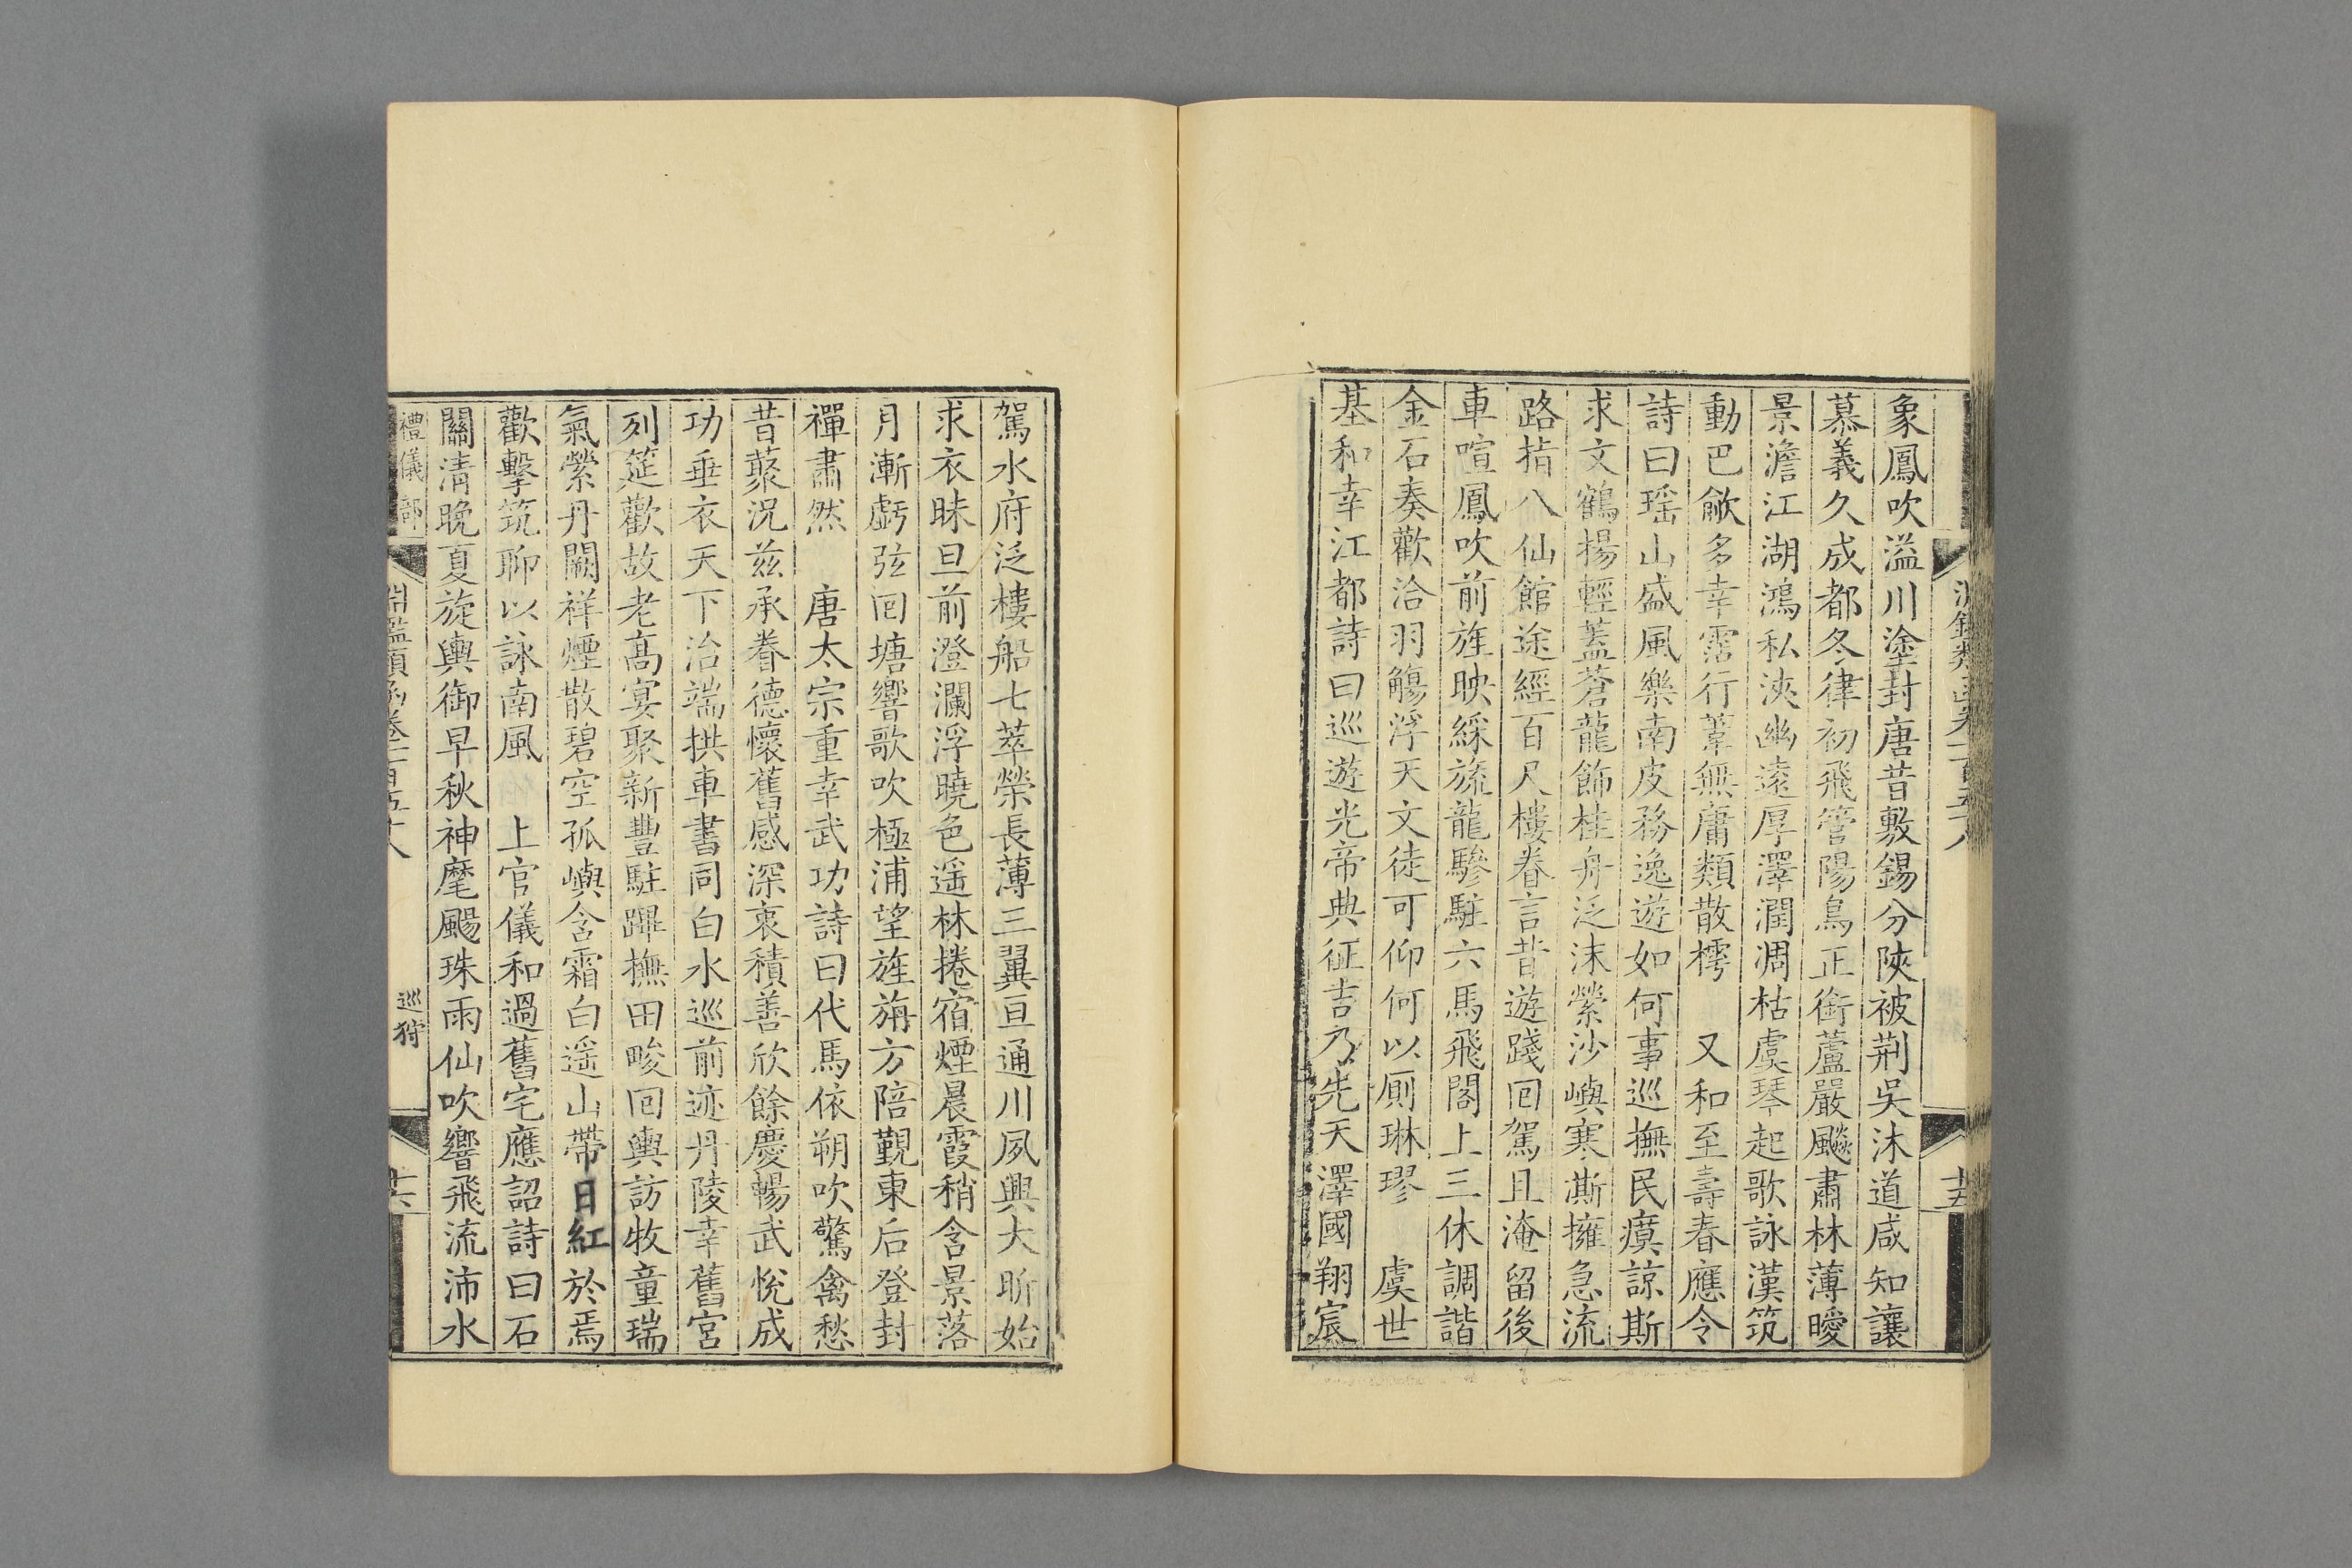 象鳳吹溢川塗封唐昔敷錫分陝被荆吳沐道咸知讓
慕義久成都冬律初飛管陽鳥正銜蘆嚴飈肅林薄曖
景澹江湖鴻私浹幽遠厚澤潤凋枯虞琴起歌詠漢筑
動巴歈多幸霑行葦無庸類散樗　又和至壽春應令
詩曰瑶山盛風樂南皮務逸遊如何事巡撫民瘼諒斯
求文鶴揚輕蓋蒼龍飾桂舟泛沫縈沙嶼寒澌擁急流
路指八仙館途經百尺樓眷言昔遊踐囘駕且淹留後
車喧鳳吹前旌映綵旒龍驂駐六馬飛閣上三休調諧
金石奏歡洽羽觴浮天文徒可仰何以厠琳璆　虞世
基和幸江都詩曰巡遊光帝典征吉乃先天澤國翔宸
駕水府泛樓船七萃榮長薄三翼亘通川夙興大昕始
求衣昧旦前澄瀾浮曉色遥林捲宿煙晨霞稍含景落
月漸虧弦囘塘響歌吹極浦望旌旃方陪覲東后登封
禪肅然　唐太宗重幸武功詩曰代馬依朔吹驚禽愁
昔藂况兹承眷德懷舊感深衷積善欣餘慶暢武悅成
功垂衣天下治端拱車書同白水巡前迹丹陵幸舊宮
列筵歡故老高宴聚新豐駐蹕撫田畯囘輿訪牧童瑞
氣縈丹闕祥煙散碧空孤嶼含霜白遥山帶日紅於焉
歡擊筑聊以詠南風　上官儀和過舊宅應詔詩曰石
關清晚夏旋輿御早秋神麾颺珠雨仙吹響飛流沛水
禮儀部
淵鑑類函卷一百五十八
巡狩
十六